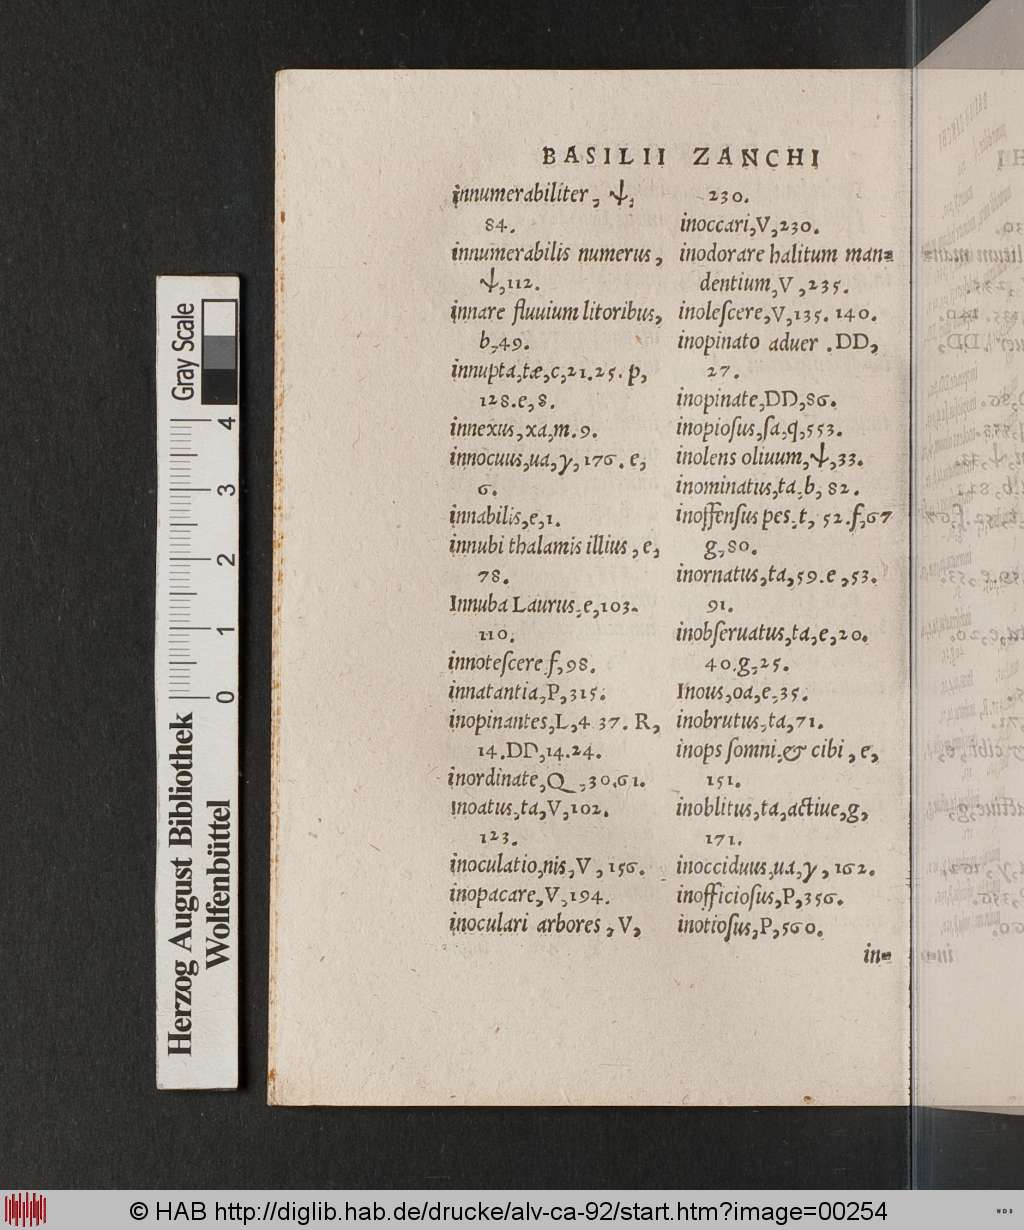 BASILII ZANCHI
innumerabiliter, ψ,
84.
innumerabilis numerus,
ψ,112.
innare fluuium litoribus,
b,49.
innupta,tæ,c,21.25. p,
128.e,8.
innexus,xa,m.9.
innocuus,ua,γ,176. e,
6.
innabilis,e,1.
innubi thalamis illius, e,
78.
Innuba Laurus,e,103.
110.
innoteſcere f,98.
innatantia,P,315.
inopinantes,L,4 37. R,
14.DD,14.24.
inordinate,Q,30.61.
inoatus,ta,V,102.
123.
inoculatio,nis,V, 156.
inopacare,V,194.
inoculari arbores, V,
230.
inoccari,V,230.
inodorare halitum man=
dentium,V,235.
inoleſcere,V,135. 140.
inopinato aduer .DD,
27.
inopinate,DD,86.
inopioſus,ſa,q,553.
inolens oliuum,ψ,33.
inominatus,ta,b, 82.
inoffenſus pes.t, 52.f,67
g,80.
inornatus,ta,59.e,53.
91.
inobſeruatus,ta,e,20.
40.g,25.
Inous,oa,e,35.
inobrutus,ta,71.
inops ſomni,& cibi, e,
151.
inoblitus,ta,actiue,g,
171.
inocciduus,ua,γ, 162.
inofficioſus,P,356.
inotioſus,P,560.
in=
Gray Scale
4
3
2
1
0
Herzog August Bibliothek
Wolfenbüttel
© HAB http://diglib.hab.de/drucke/alv-ca-92/start.htm?image=00254